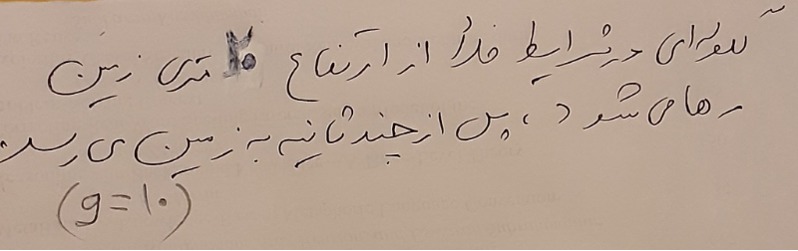 گلوله‌ای در شرایط خلأ از ارتفاع ۲۰ متری زمین
رها می شود، پس از چند ثانیه به زمین می رسد
(g=۱۰)